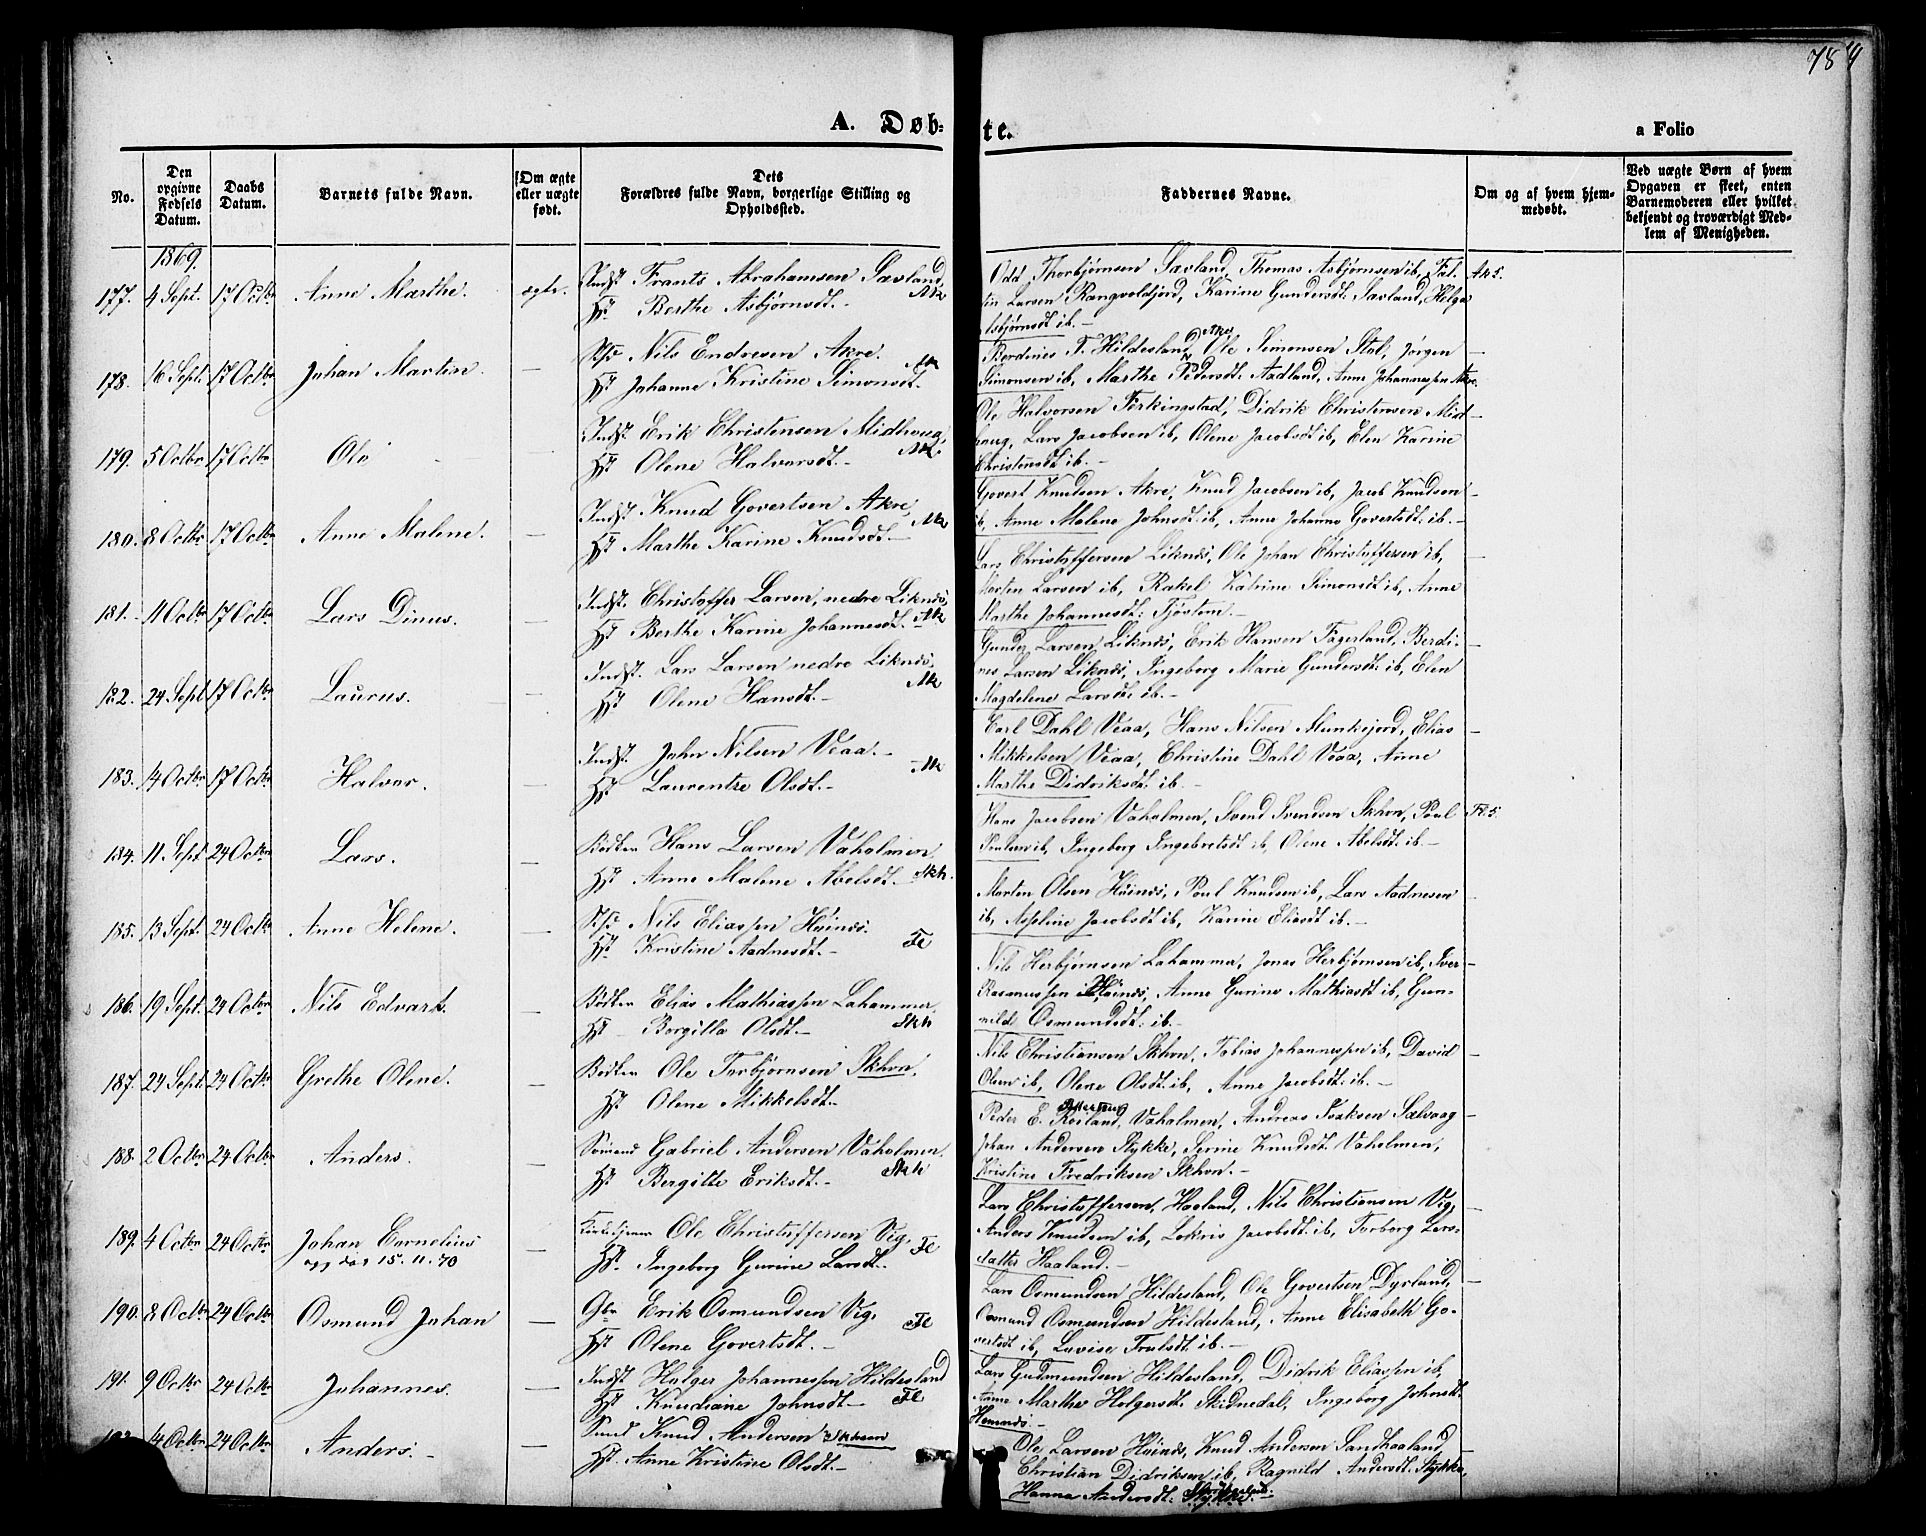 78 4
A. Døb-
te.
a Folio
No.
Den opgivne Fødsels Datum.
Daabs Datum.
Barnets fulde Navn.
Om ægte eller uægte født.
Dets Forældres fulde Navn, borgerlige Stilling og Opholdssted.
Faddernes Navne.
Om og af hvem hjemmedøbt.
Ved uægte Børn af hvem Opgaven er skeet, enten Barnemoderen eller hvilket bekjendt og troværdigt Medlem af Menigheden.
1869.
177. 4 Sept. 17 Octbr Anne Marthe. ægte. Indst Frants Abrahamsen Sævland,
Hst Berthe Asbjørnsdt.- Ak
Odd Thorbjørnsen Sævland, Thomas Asbjørnsen ib, Fal- Ak 5.
tin Larsen Rangvoldjord, Karine Gundersdt. Sævland, Helga
Asbjørnsdt ib.-
178. 16 Sept. 17 Octbr Johan Martin. — Nils Endresen Akre.
Hst Johanne Kristine Simonsdt. Ak
Berdines T. Hildesland, Ole Simonsen Stol, Jørgen —
Simonsen ib, Marthe Pedersdt. Aadland, Anne Johannessen Akre.
179. 5 Octbr 17 Octbr Ole — Indst. Erik Christensen Midhoug,
Hst Olene Halvorsdt.- Ak.
Ole Halvorsen Ferkingstad, Didrik Christensen Mid-
houg, Lars Jacobsen ib, Olene Jacobsdt ib, Elen Karine
Christensdt ib.-
180. 8 Octbr 17 Octbr Anne Malene. — Indst Knud Govertsen Akre,
Hst Marthe Karine Knudsdt.- Ak
Govert Knudsen Akre, Knud Jacobsen ib, Jacob Knudsen —
ib, Anne Malene Johnsdt. ib, Anne Johanne Govertsdt. ib.-
181. 11 Octbr 17 Octbr Lars Dinus. — Indst. Christoffer Larsen, nedre Liknes,
Hst Berthe Karine Johannesdt. Ak
Lars Christoffersen Liknes, Ole Johan Christoffersen ib, —
Morten Larsen ib, Rakel Katrine Simonsdt ib, Anne
Marthe Johannesdt: Tjøstem.-
182. 24 Sept 17 Octbr Laurus. — Indst. Lars Larsen nedre Liknes,
Hst Olene Hansdt.- Ak
Gunder Larsen Liknes, Erik Hansen Fagerland, Berdi- —
nes Larsen Liknes, Ingeborg Marie Gundersdt. ib, Elen
Magdelene Larsdt. ib.-
183. 14 Octbr 17 Octbr Halvor. — Indst. John Nilsen Veaa.-
Hst Laurentze Olsdt.- Ak
Carl Dahl Veaa, Hans Nilsen Munkejord, Elias —
Mikkelsen Veaa, Christine Dahl Veaa, Anne
Marthe Didriksdt. ib.-
184. 11 Sept 24 Octbr Lars. — Bødker Hans Larsen Vaholmen,
Hst Anne Malene Abelsdt.- Skh.
Hans Jacobsen Vaholmen, Svend Svendsen Skhvn, Poul Fl 5.
Poulsen ib, Ingeborg Ingebretsdt ib, Olene Abelsdt. ib.-
185. 13 Sept. 24 Octbr Anne Helene. — Nils Eliassen Høines.
Hst Kristine Aadnesdt.- Fl
Martin Olsen Høines, Poul Knudsen ib, Lars Aadnesen —
ib, Asseline Jacobsdt ib, Karine Eliasdt ib.-
186. 19 Sept. 24 Octbr Nils Edvart. — Bødker Elias Mathiassen Lahammer.
Hst Borgilla Olsdt.- Skh
Nils Herbjørnsen Lahamma, Jonas Herbjørnsen ib, Iver —
Rasmussen Høines, Anne Gurine Mathiasdt ib, Gun-
nild Osmundsdt: ib.-
187. 24 Sept 24 Octbr Grethe Olene. — Bødker Ole Torbjørnsen Skhvn,
Hst Olene Mikkelsdt.-
Nils Christiansen Skhvn, Tobias Johannessen ib, David —
Olsen ib, Olene Olsdt. ib, Anne Jacobsdt. ib.-
188. 2 Octbr 24 Octbr Anders. — Sømand Gabriel Andersen Vaholmen.
Hst Bergitte Eriksdt.- Skh
Peder E. Røsland, Vaholmen, Andreas Isaksen Salvaag —
Johan Andersen Stykke, Serine Knudsdt. Vaholmen,
Kristine Fredriksen Skhvn.-
189. 4 Octbr 24 Octbr Johan Cornelius — Kirketjener Ole Christoffersen Vig,
opg død 15. 11. 70 Hst. Ingeborg Gurine Larsdt.- Fl
Lars Christoffersen, Haaland, Nils Christiansen Vig, —
Anders Knudsen ib, Lokris Jacobsdt. ib, Torborg Lars-
datter Haaland.-
190. 8 Octbr 24 Octbr Osmund Johan — Gbr Erik Osmundsen Vig,
Hst Olene Govertsdt.- Fl
Lars Osmundsen Hildesland, Ole Govertsen Dyrland, —
Osmund Osmundsen Hildesland, Anne Elisabeth Go-
vertsdt ib, Lovise Trulsdt. ib.-
191. 9 Octbr 24 Octbr Johannes. — Indst Holger Johannessen Hildesland
Hst Knudiane Johnsdt.- Fl
Lars Gudmundsen Hildesland, Didrik Eliassen ib, —
Anne Marthe Holgersdt. Skidnedal, Ingeborg Johnsdt.
Hemnes.-
192. 14 Octbr 24 Octbr Anders.- — Knud Andersen Skhvn
Hst. Anne Kristine Olsdt.-
Ole Larsen Høines, Knud Andersen Sandhaaland —
Christian Didriksen ib, Ragnild Andersdt. Stykke,
Hanna Andersdt. Stykke.-